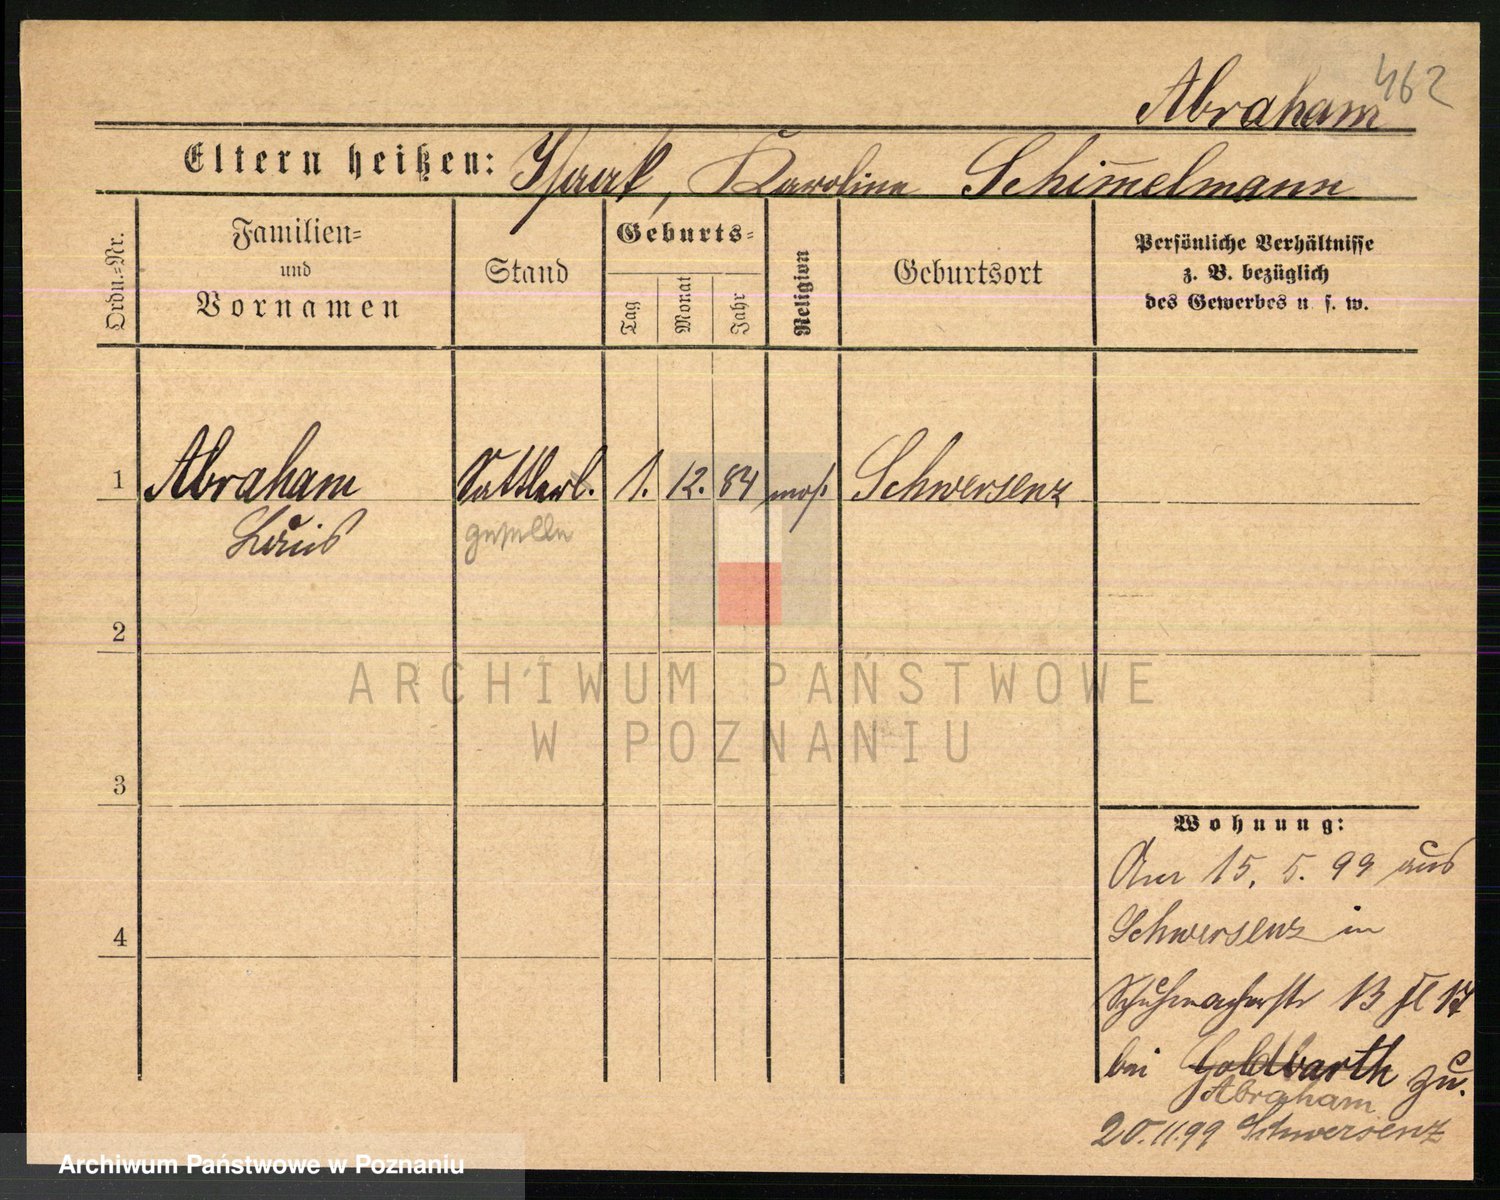 462
Abraham
Eltern heißen: Isaak, Karoline Schim̅elmann
Ordn.=Nr.
Familien=
und
Vornamen
Stand
Geburts=
Tag
Monat
Jahr
Religion
Geburtsort
Persönliche Verhältnisse
z. B. bezüglich
des Gewerbes u. s. w.
1 Abraham Sattlerl. 1. 12. 84 mos. Schwersenz
Louis geselle
2
3
4
Wohnung:
Am 15. 5. 99 aus
Schwersenz in
Schuhmacherstr 13
bei Goldbarth zu.
Abraham
20.11.99 Schwersenz
ARCHIWUM PAŃSTWOWE
W POZNANIU
Archiwum Państwowe w Poznaniu